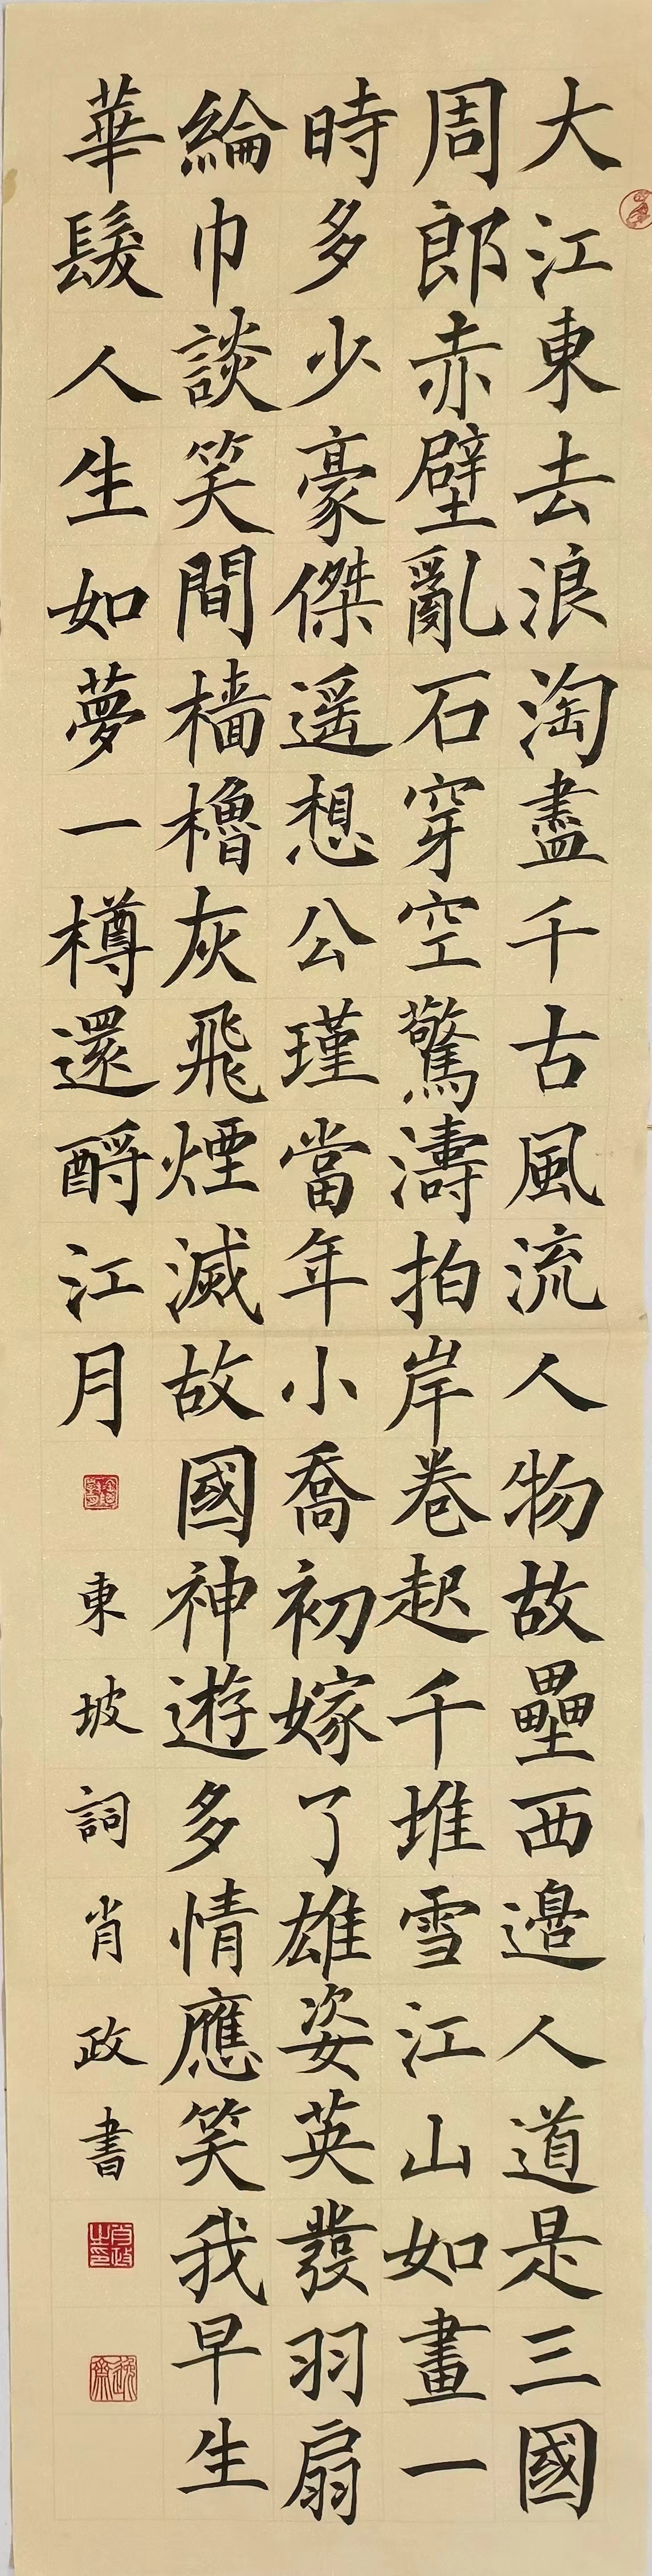 大江東去浪淘盡千古風流人物故壘西邊人道是三國
周郎赤壁亂石穿空驚濤拍岸卷起千堆雪江山如畫一
時多少豪傑遥想公瑾當年小喬初嫁了雄姿英發羽扇
綸巾談笑間檣櫓灰飛煙滅故國神遊多情應笑我早生
華髮人生如夢一樽還酹江月
東坡詞肖政書